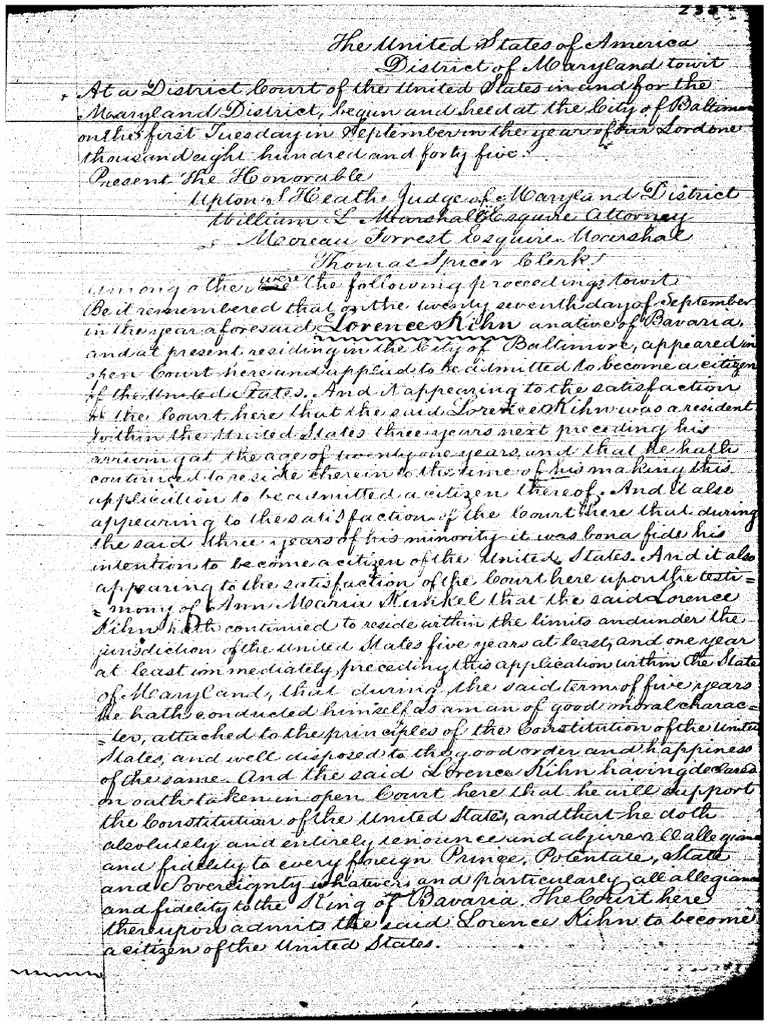 The United States of America
District of Maryland towit
At a District Court of the United States in and for the
Maryland District, begun and held at the City of Baltimore
on the first Tuesday in September in the year of our Lord one
thousand eight hundred and forty five.
Present The Honorable
Upton S Heathe Judge of Maryland District
William L Marshall Esquire Attorney
Moreau Forrest Esquire Marshal
Thomas Spicer Clerk
Among other were the following proceedings towit
Be it remembered that on the twenty seventh day of September
in the year aforesaid Lorence Kihn a native of Bavaria,
and at present residing in the City of Baltimore, appeared in
open Court here and applied to be admitted to become a citizen
of the United States. And it appearing to the satisfaction
of the Court here that the said Lorence Kihn was a resident
within the United States three years next preceding his
arriving at the age of twenty one years, and that he hath
continued to reside therein to the time of his making this
application to be admitted a citizen thereof. And it also
appearing to the satisfaction of the Court here that during
the said three years of his minority it was bona fide his
intention to become a citizen of the United States. And it also
appearing to the satisfaction of the Court here upon the testi=
=mony of Ann Maria Kunkel that the said Lorence
Kihn hath continued to reside within the limits and under the
jurisdiction of the United States five years at least, and one year
at least immediately preceding this application within the State
of Maryland, that during the said term of five years
he hath conducted himself as a man of good moral charac=
=ter, attached to the principles of the Constitution of the United
States, and well disposed to the good order and happiness
of the same. And the said Lorence Kihn having declared
on oath taken in open Court here that he will support
the Constitution of the United States, and that he doth
absolutely and entirely renounce and abjure all allegiance
and fidelity to every foreign Prince, Potentate, State
and Sovereignty whatever and particularly all allegiance
and fidelity to the King of Bavaria. The Court here
thereupon admits the said Lorence Kihn to become
a citizen of the United States.